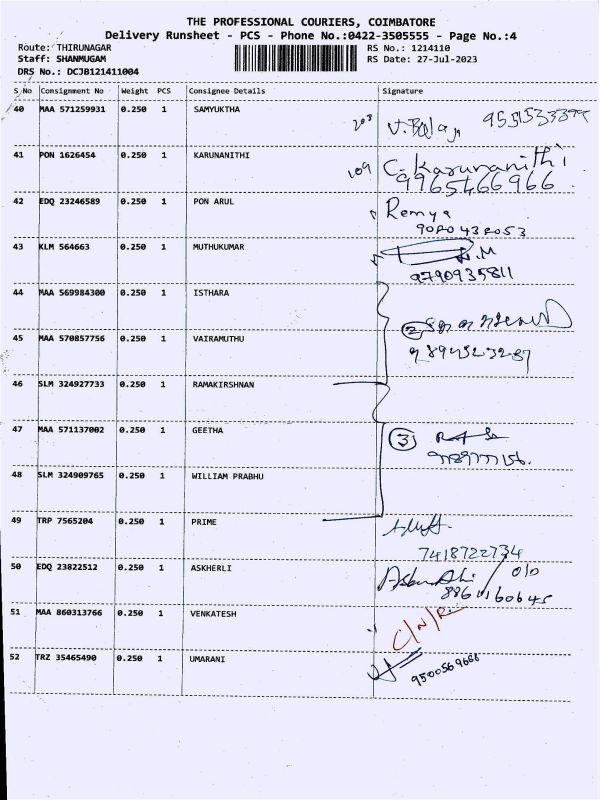 THE PROFESSIONAL COURIERS, COIMBATORE
Delivery Runsheet - PCS - Phone No.:0422-3505555 - Page No.:4
Route: THIRUNAGAR RS No.: 1214110
Staff: SHANMUGAM RS Date: 27-Jul-2023
DRS No.: DCJB121411004
S No Consignment No Weight PCS Consignee Details Signature
40 MAA 571259931 0.250 1 SAMYUKTHA 203 V. Balaji
41 PON 1626454 0.250 1 KARUNANITHI 109 C. Karunanithi
9965466966
42 EDQ 23246589 0.250 1 PON ARUL Remya
43 KLM 564663 0.250 1 MUTHUKUMAR
9790935811
44 MAA 569984300 0.250 1 ISTHARA
2
45 MAA 570857756 0.250 1 VAIRAMUTHU
46 SLM 324927733 0.250 1 RAMAKIRSHNAN
47 MAA 571137002 0.250 1 GEETHA 3
48 SLM 324909765 0.250 1 WILLIAM PRABHU
49 TRP 7565204 0.250 1 PRIME
7418722734
50 EDQ 23822512 0.250 1 ASKHERLI
51 MAA 860313766 0.250 1 VENKATESH C/N/R
52 TRZ 35465490 0.250 1 UMARANI
9500569686